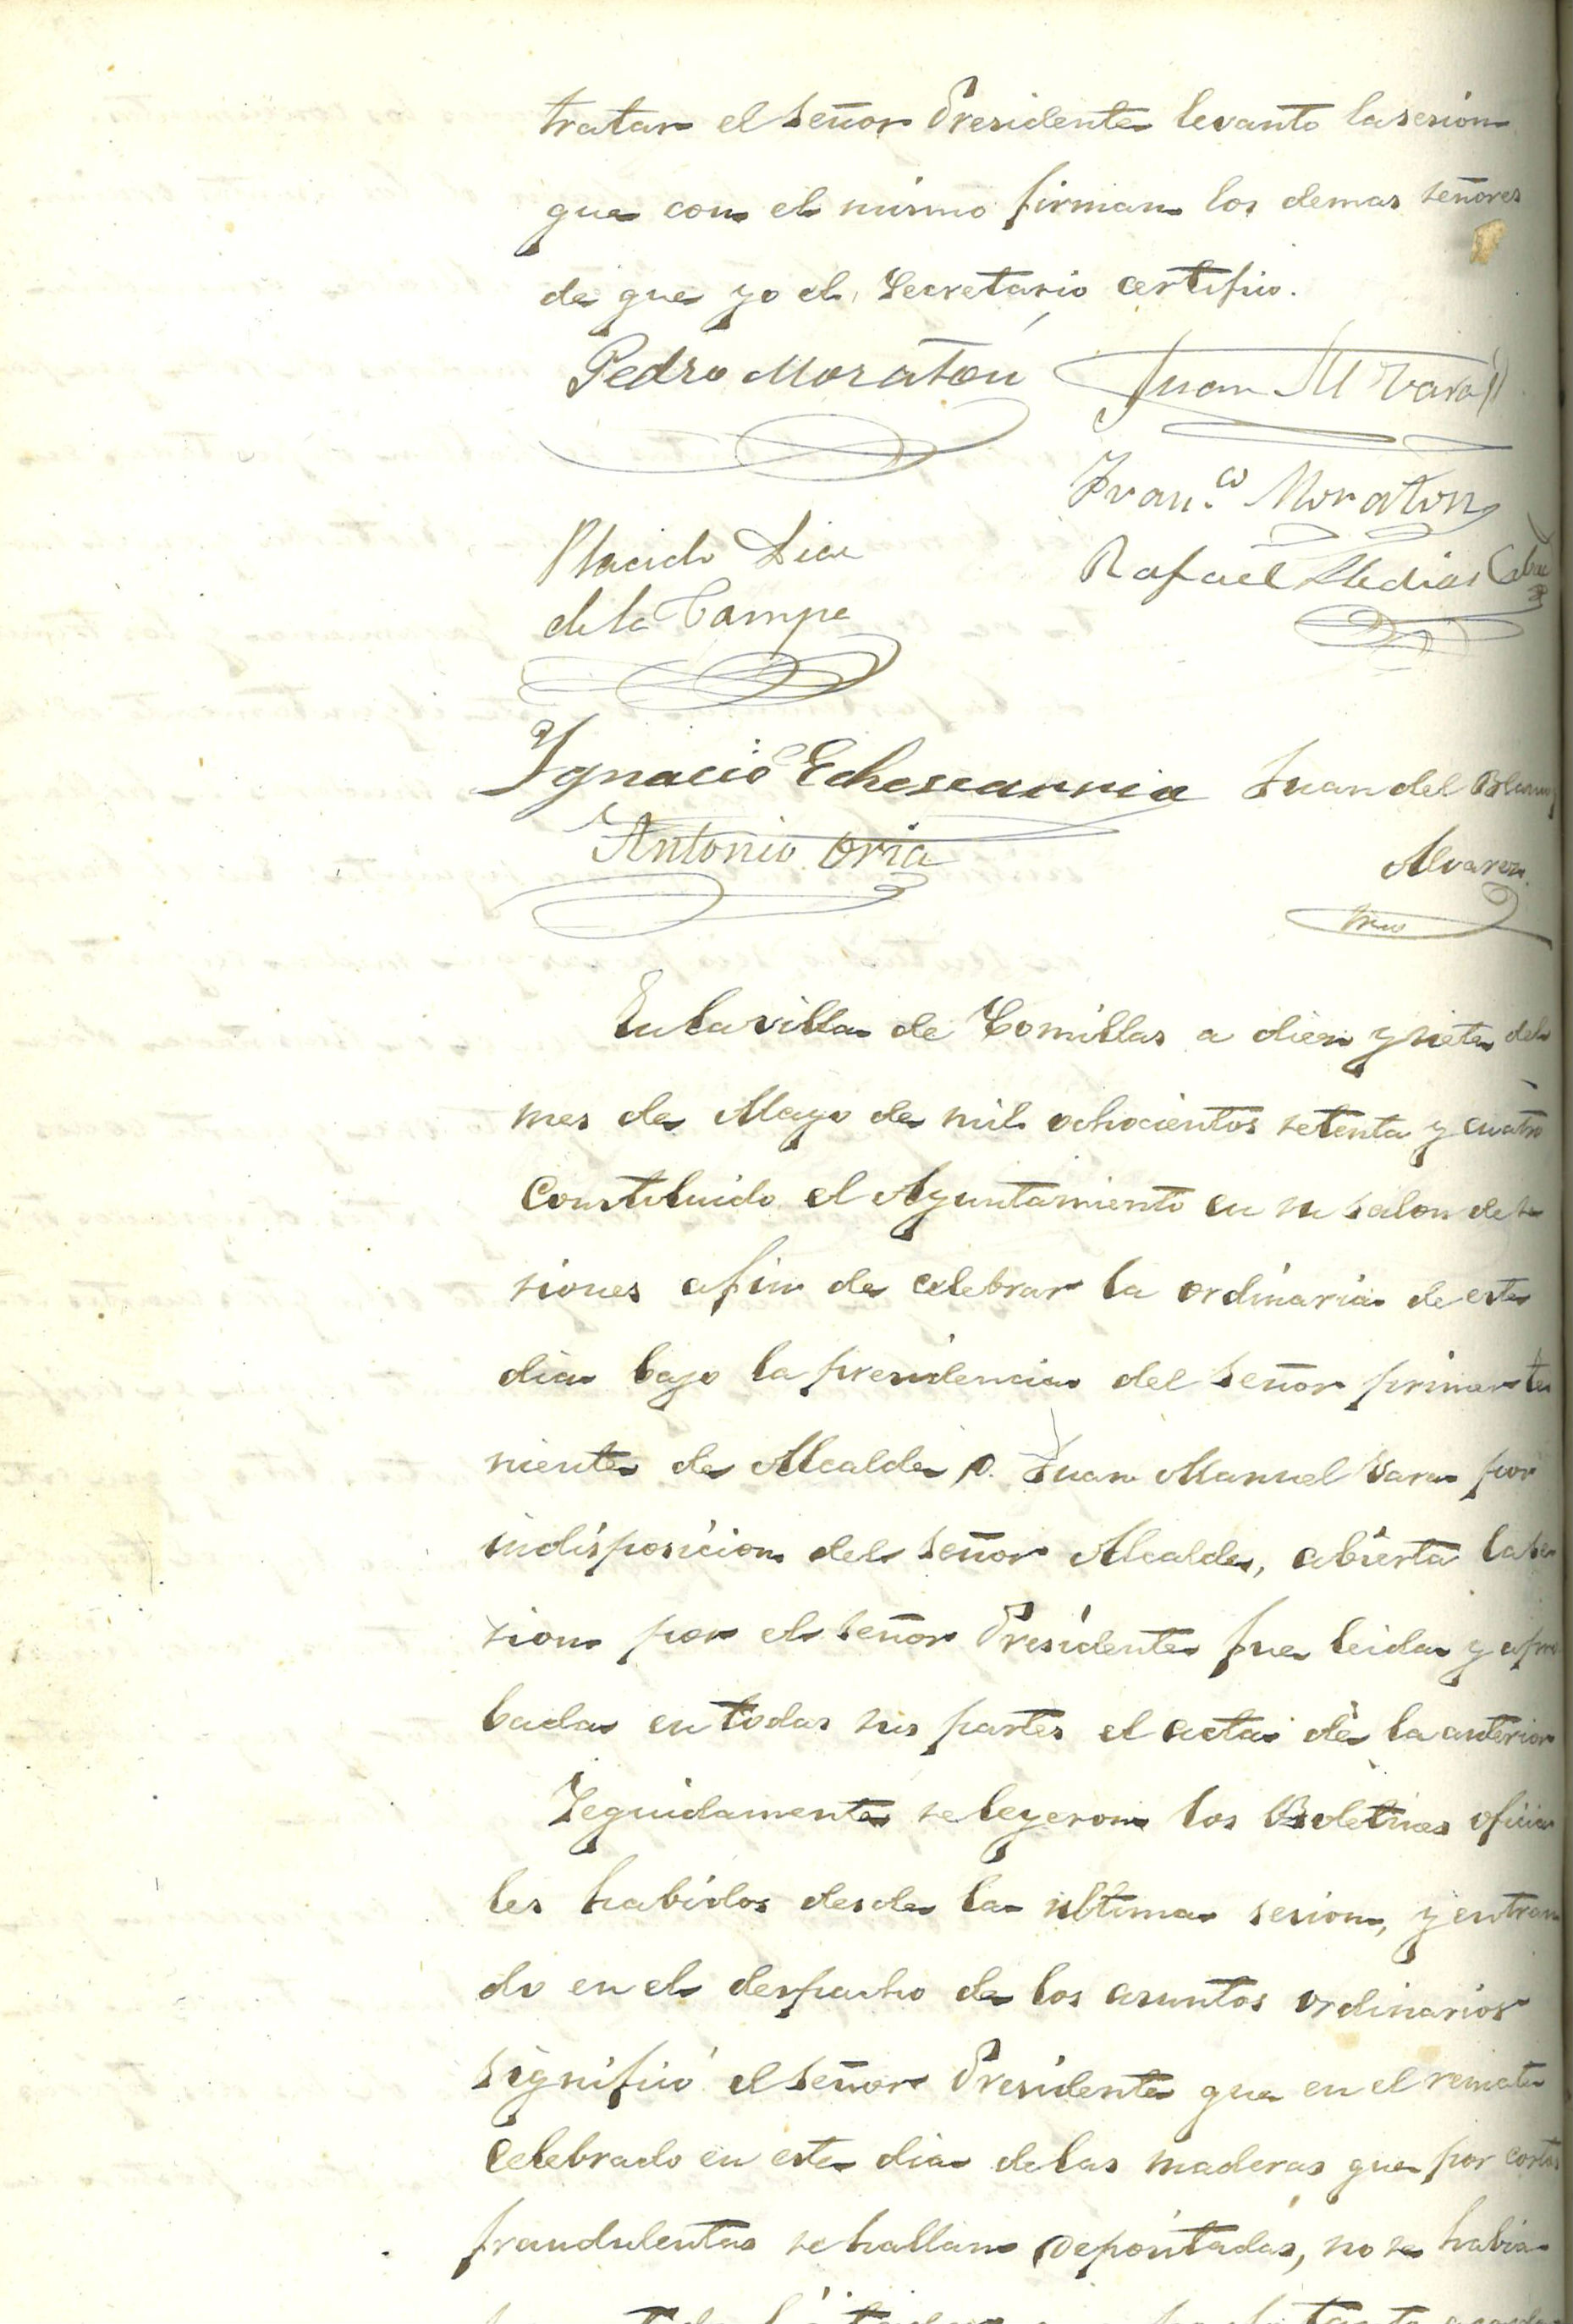 tratar el señor Presidente levanto la sesion
que con el mismo firman los demas señores
de que yo el Secretario certifico.
Pedro Moraton Juan M Vara
Fran.co Moraton
Placido Diaz Rafael Medias
de la Campa
Ygnacio Echevarria Juan del
Antonio Oria Alvarez
En la villa de Comillas a diez y siete del
mes de Mayo de mil ochocientos setenta y cuatro
Constituido el Ayuntamiento en su salon de se
siones a fin de celebrar la ordinaria de este
dia bajo la presidencia del señor primer te
niente de Alcalde D. Juan Manuel Vara por
indisposicion del señor Alcalde, abierta la se
sion por el señor Presidente fue leida y apro
bada en todas sus partes el acta de la anterior
Seguidamente se leyeron los Boletines oficia
les habidos desde la ultima sesion, y entran
do en el despacho de los asuntos ordinarios
significó el señor Presidente que en el remate
celebrado en este dia de las maderas que por cortas
fraudulentas se hallan depositadas, no se habia